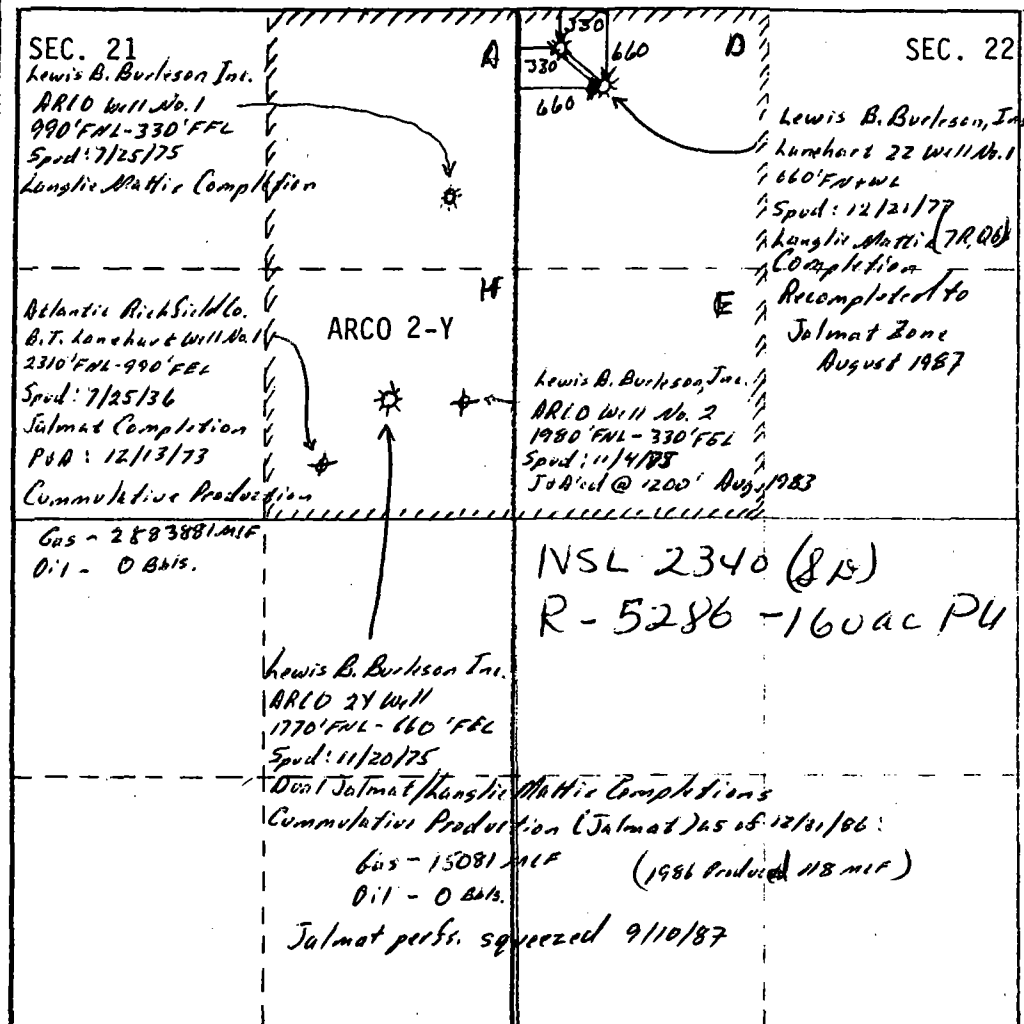 SEC. 21
Lewis B. Burleson Inc.
ARCO Well No. 1
990'FNL-330'FFL
Spud: 7/25/75
Langlie Mattix Completion
A
330
330
660
660
D
SEC. 22
Lewis B. Burleson, Inc
Lanehart 22 Well No. 1
660'FN+WL
Spud: 12/21/77
Langlie Mattix (7R, Qb)
Completion
Recompleted to
Jalmat Zone
August 1987
Atlantic Richfield Co.
B.T. Lanehart Well No. 1
2310'FNL-990'FEL
Spud: 7/25/36
Jalmat Completion
P&A: 12/13/73
Cummulative Production
Gas - 2883881 MCF
Oil - 0 Bbls.
H
ARCO 2-Y
E
Lewis B. Burleson, Inc.
ARCO Well No. 2
1980'FNL-330'FEL
Spud: 11/4/
J&A'ed @ 1200' Aug. 1983
NSL 2340
R-5286 -160ac PU
Lewis B. Burleson Inc.
ARCO 2Y Well
1770'FNL-660'FEL
Spud: 11/20/75
Dual Jalmat/Langlie Mattix Completions
Cummulative Production (Jalmat) as of 12/31/86:
Gas - 15081 MCF (1986 Produced 118 MCF)
Oil - 0 Bbls.
Jalmat perfs. squeezed 9/10/87